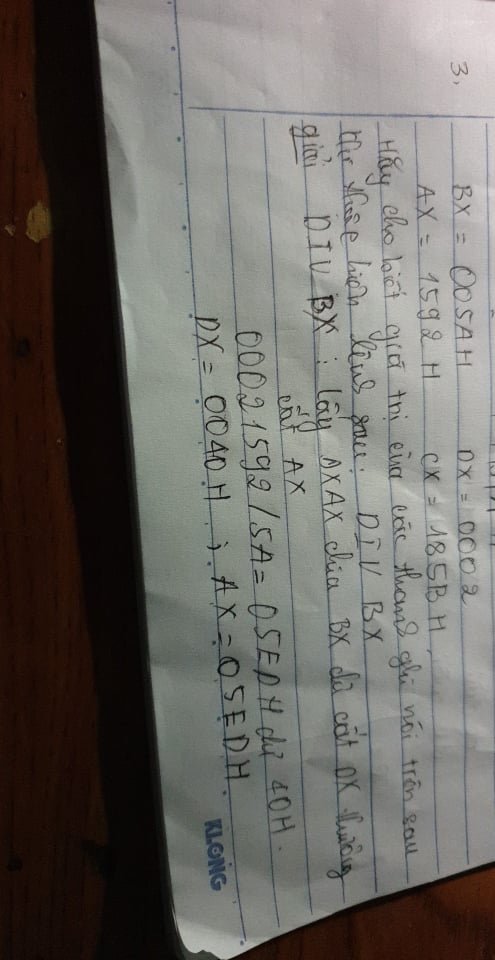 3. BX = 005AH DX = 0002
AX = 1592 H CX = 185B H.
Hãy cho biết giá trị của các thanh ghi nói trên sau
khi thực hiện lệnh sau: DIV BX
giải DIV BX : lấy DXAX chia BX dư cất DX thương
cất AX
00021592 / 5A = 05EDH dư 40H.
DX = 0040 H ; AX = 05EDH.
KLONG